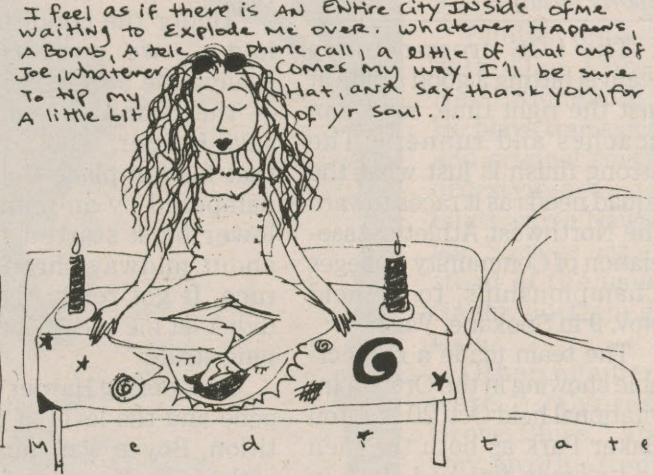 I feel as if there is an entire city inside of me
waiting to explode me over. Whatever happens,
a bomb, a tele phone call, a little of that cup of
Joe, whatever comes my way, I'll be sure
to tip my hat, and say thank you, for
a little bit of yr soul.
M e d i t a t e